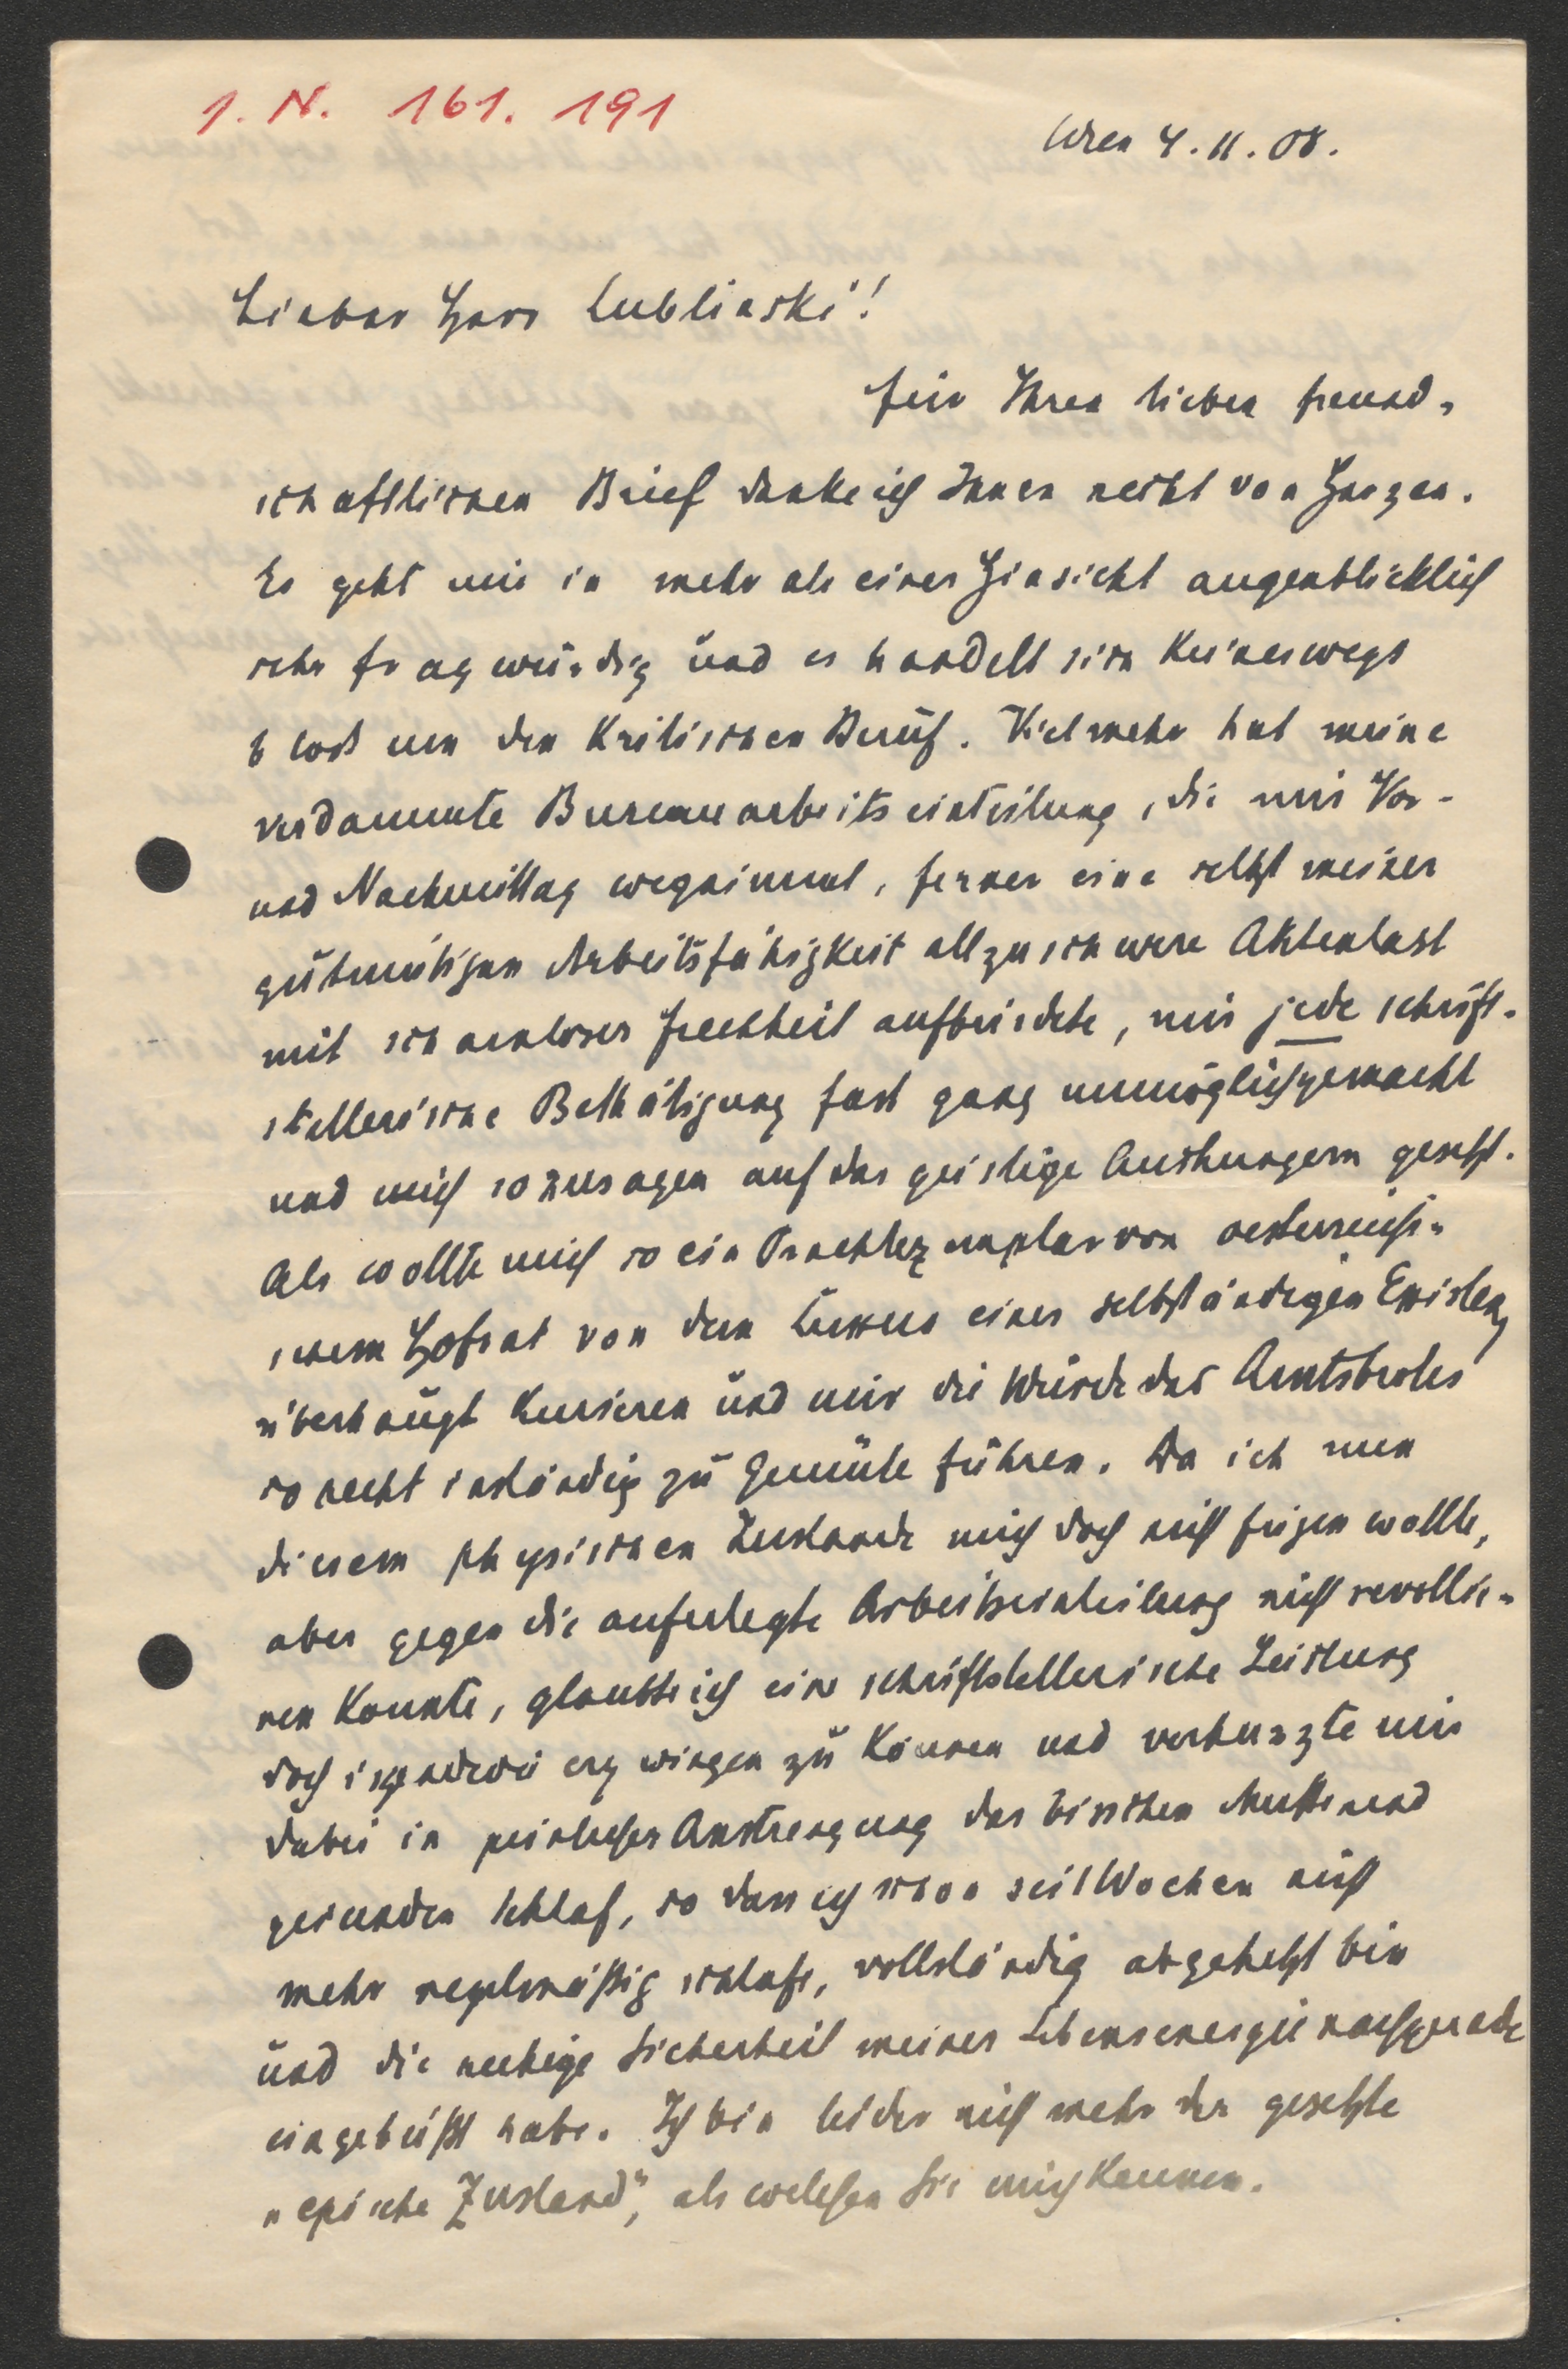 I. N. 161. 191
Wien 4. 11. 08.
Lieber Herr Lublinski!
Für Ihren lieben freund-
schaftlichen Brief danke ich Ihnen recht von Herzen.
Es geht mir in mehr als einer Hinsicht augenblicklich
sehr fragwürdig und es handelt sich keineswegs
bloß um den kritischen Beruf. Vielmehr hat meine
verdammte Bureauarbeitseinteilung, die mir Vor-
und Nachmittag wegnimmt, ferner eine selbst meiner
gutmütigen Arbeitsfähigkeit allzuschwere Aktenlast
mit schamloser Frechheit aufbürdete, mir jede schrift-
stellerische Bethätigung fast ganz unmöglich gemacht
und mich sozusagen auf das geistige Aushungern gesetzt.
Als wollte mich so ein Prachtexemplar von oesterreichi-
schem Hofrat von dem Luxus einer selbständigen Existenz
überhaupt kurieren und mir die Würde des Amtsbrotes
so recht inständig zu Gemüte führen. Da ich nun
diesem physischen Zustande mich doch nicht fügen wollte,
aber gegen die auferlegte Arbeitseinteilung nicht revoltie-
ren konnte, glaubte ich eine schriftstellerische Leistung
doch irgendwie erzwingen zu können und verhunzte mir
dabei in peinlicher Anstrengung das bisschen Muße und
gesunden Schlaf, so dass ich schon seit Wochen nicht
mehr regelmäßig schlafe, vollständig abgehetzt bin
und die ruhige Sicherheit meiner Lebensenergie nachgerade
eingebüßt habe. Ich bin leider nicht mehr der gesetzte
„epische Zustand", als welchen Sie mich kennen.